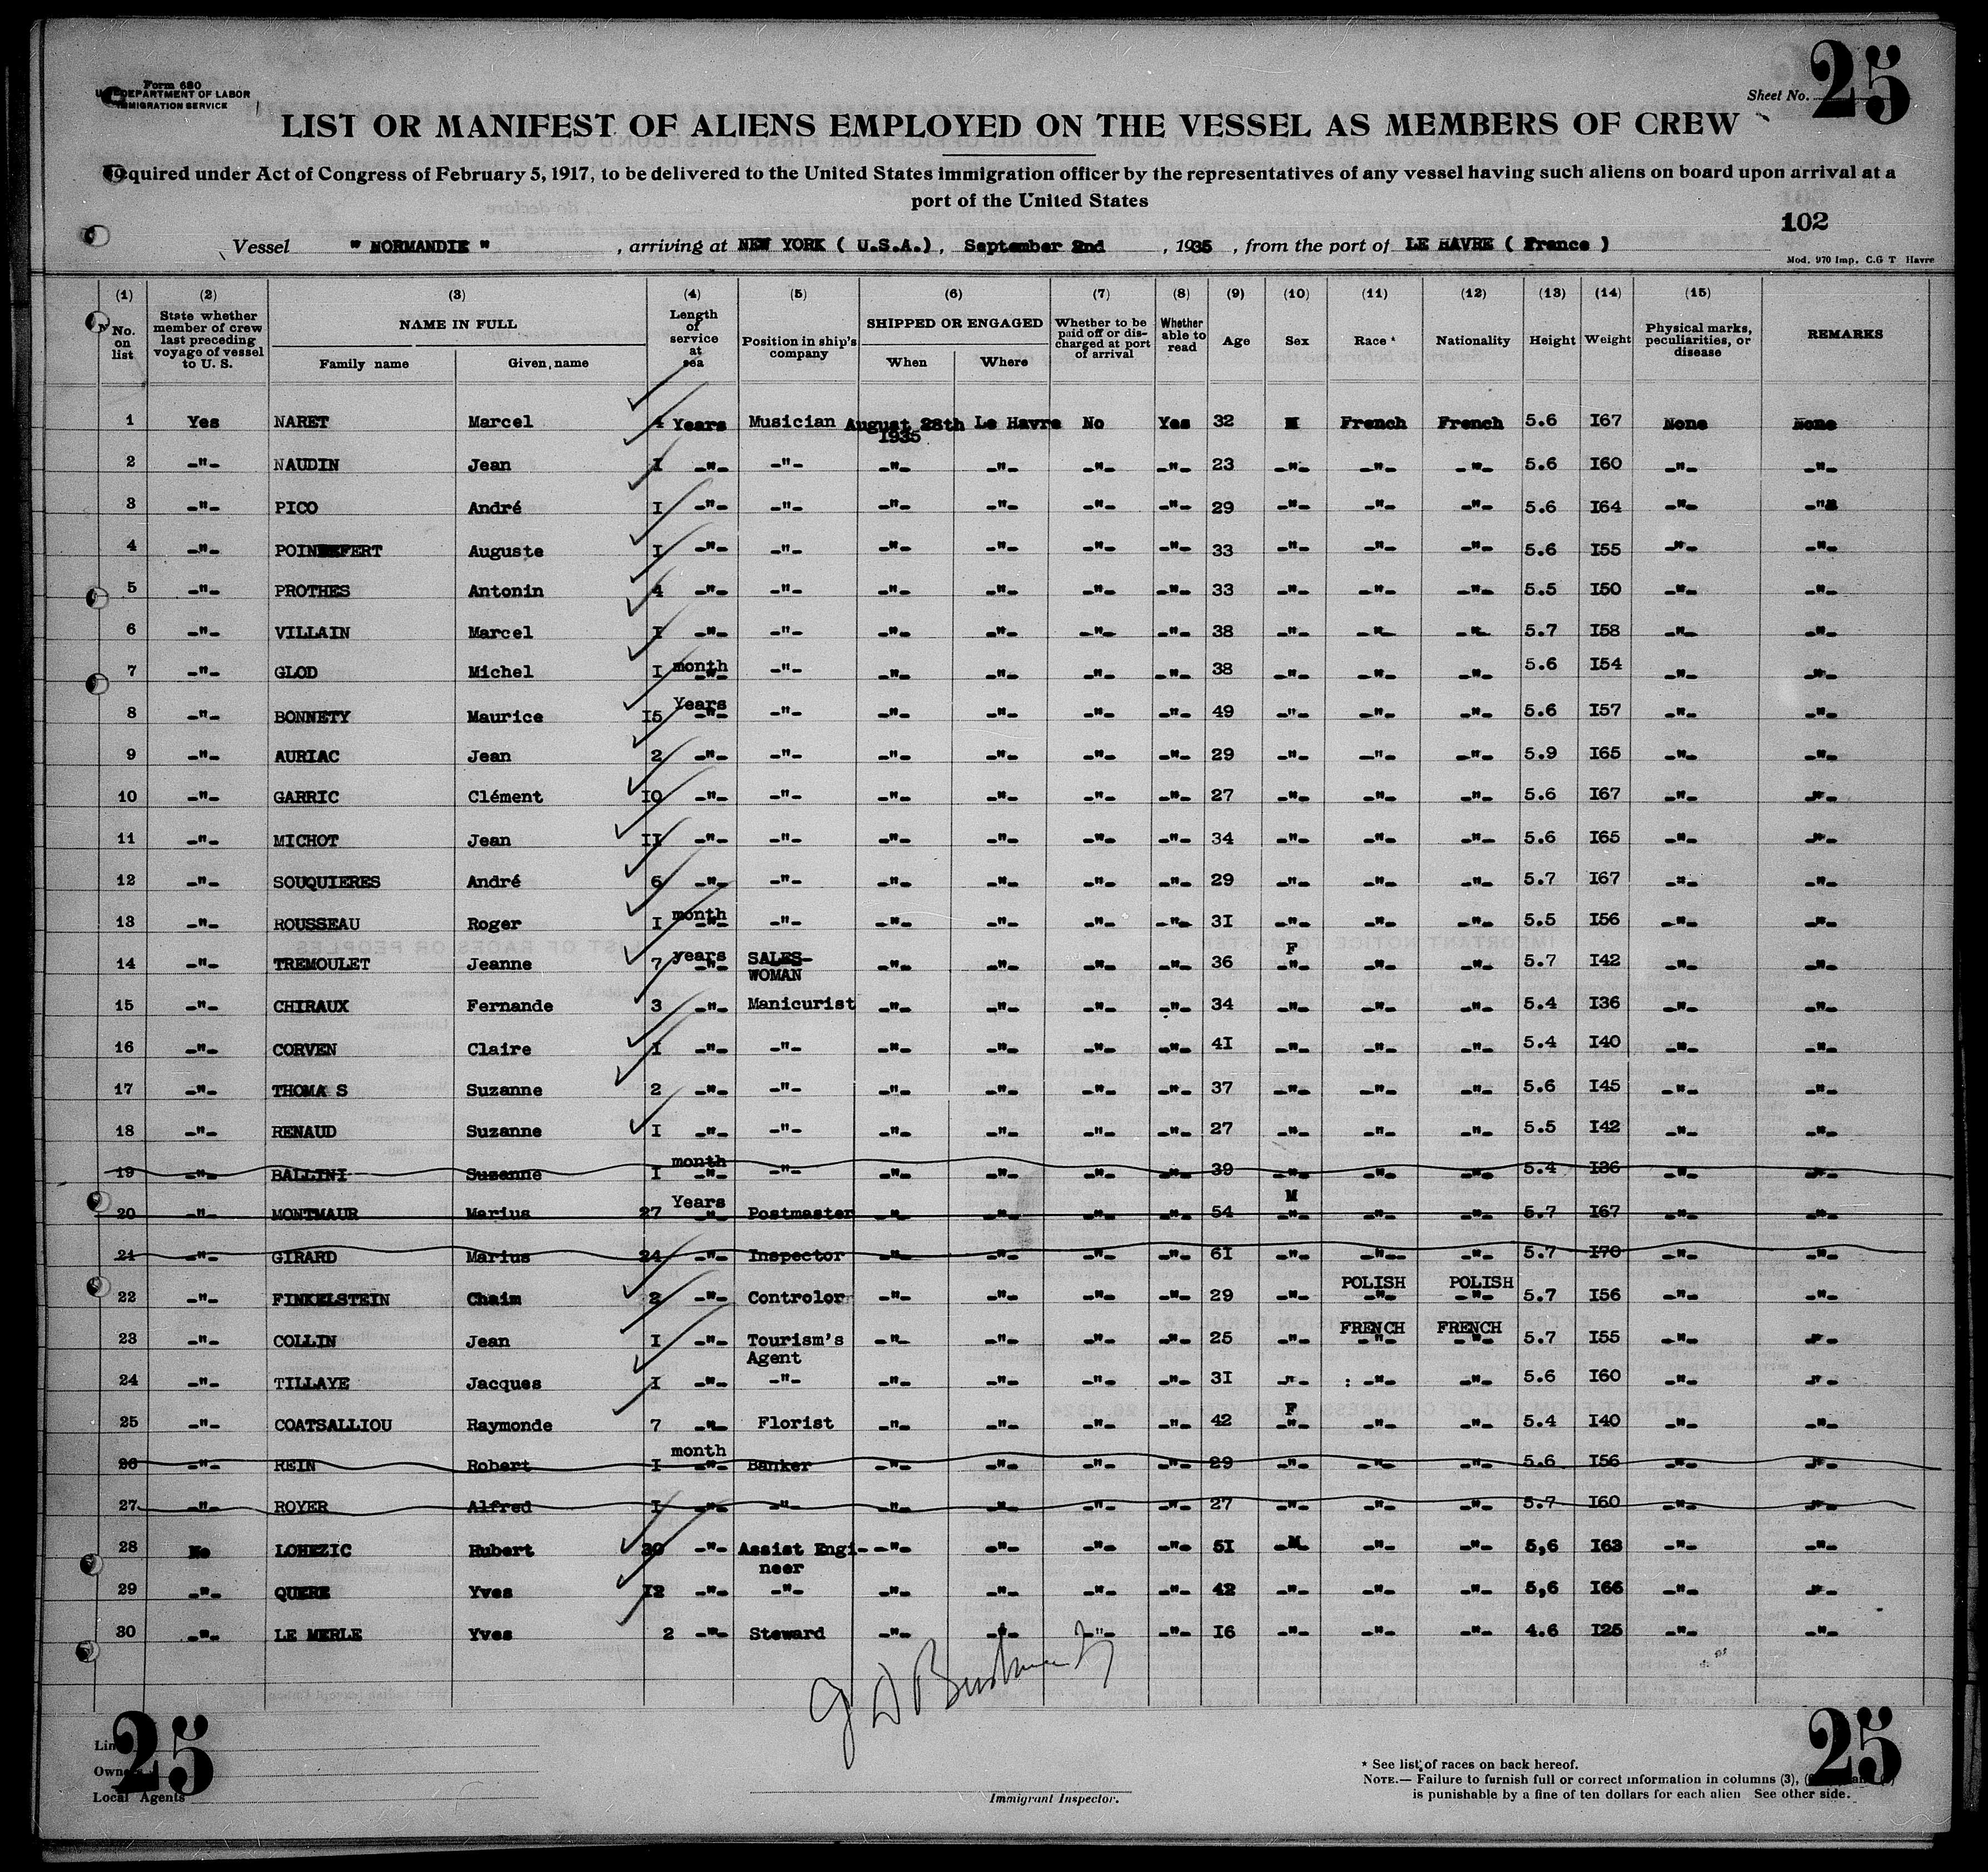 Form 680
U. S. DEPARTMENT OF LABOR
IMMIGRATION SERVICE
Sheet No. 25
LIST OR MANIFEST OF ALIENS EMPLOYED ON THE VESSEL AS MEMBERS OF CREW
Required under Act of Congress of February 5, 1917, to be delivered to the United States immigration officer by the representatives of any vessel having such aliens on board upon arrival at a
port of the United States
102
Vessel " NORMANDIE " , arriving at NEW YORK ( U.S.A.) , September 2nd , 1935 , from the port of LE HAVRE ( France )
Mod. 970 Imp. C.G T Havre
(1) (2) (3) (4) (5) (6) (7) (8) (9) (10) (11) (12) (13) (14) (15)
No. on list State whether member of crew last preceding voyage of vessel to U. S. NAME IN FULL Family name Given name Length of service at sea Position in ship's company SHIPPED OR ENGAGED When Where Whether to be paid off or discharged at port of arrival Whether able to read Age Sex Race * Nationality Height Weight Physical marks, peculiarities, or disease REMARKS
1 Yes NARET Marcel 4 Years Musician August 28th 1935 Le Havre No Yes 32 M French French 5.6 I67 None None
2 -"- NAUDIN Jean I -"- -"- -"- -"- -"- -"- 23 -"- -"- -"- 5.6 I60 -"- -"-
3 -"- PICO André I -"- -"- -"- -"- -"- -"- 29 -"- -"- -"- 5.6 I64 -"- -"-
4 -"- Auguste I -"- -"- -"- -"- -"- -"- 33 -"- -"- -"- 5.6 I55 -"- -"-
5 -"- PROTHES Antonin 4 -"- -"- -"- -"- -"- -"- 33 -"- -"- -"- 5.5 I50 -"- -"-
6 -"- VILLAIN Marcel I -"- -"- -"- -"- -"- -"- 38 -"- -"- -"- 5.7 I58 -"- -"-
7 -"- GLOD Michel I month -"- -"- -"- -"- -"- -"- 38 -"- -"- -"- 5.6 I54 -"- -"-
8 -"- BONNETY Maurice I5 Years -"- -"- -"- -"- -"- -"- 49 -"- -"- -"- 5.6 I57 -"- -"-
9 -"- AURIAC Jean 2 -"- -"- -"- -"- -"- -"- 29 -"- -"- -"- 5.9 I65 -"- -"-
10 -"- GARRIC Clément I0 -"- -"- -"- -"- -"- -"- 27 -"- -"- -"- 5.6 I67 -"- -"-
11 -"- MICHOT Jean II -"- -"- -"- -"- -"- -"- 34 -"- -"- -"- 5.6 I65 -"- -"-
12 -"- SOUQUIERES André 6 -"- -"- -"- -"- -"- -"- 29 -"- -"- -"- 5.7 I67 -"- -"-
13 -"- ROUSSEAU Roger I month -"- -"- -"- -"- -"- -"- 3I -"- -"- -"- 5.5 I56 -"- -"-
14 -"- TREMOULET Jeanne 7 years -"- SALES-WOMAN -"- -"- -"- -"- 36 F -"- -"- -"- 5.7 I42 -"- -"-
15 -"- CHIRAUX Fernande 3 -"- Manicurist -"- -"- -"- -"- 34 -"- -"- -"- 5.4 I36 -"- -"-
16 -"- CORVEN Claire I -"- -"- -"- -"- -"- -"- 4I -"- -"- -"- 5.4 I40 -"- -"-
17 -"- THOMA S Suzanne 2 -"- -"- -"- -"- -"- -"- 37 -"- -"- -"- 5.6 I45 -"- -"-
18 -"- RENAUD Suzanne I -"- -"- -"- -"- -"- -"- 27 -"- -"- -"- 5.5 I42 -"- -"-
19 -"- BALLINI Suzanne I month -"- -"- -"- -"- -"- -"- 39 -"- -"- -"- 5.4 I36 -"- -"-
20 -"- MONTMAUR Marius 27 Years -"- Postmaster -"- -"- -"- -"- 54 M -"- -"- -"- 5.7 I67 -"- -"-
21 -"- GIRARD Marius 24 -"- Inspector -"- -"- -"- -"- 6I -"- -"- -"- 5.7 I70 -"- -"-
22 -"- FINKELSTEIN Chaim 2 -"- Controlor -"- -"- -"- -"- 29 -"- POLISH -"- POLISH -"- 5.7 I56 -"- -"-
23 -"- COLLIN Jean I -"- Tourism's Agent -"- -"- -"- -"- 25 -"- FRENCH -"- FRENCH -"- 5.7 I55 -"- -"-
24 -"- TILLAYE Jacques I -"- -"- -"- -"- -"- -"- 3I -"- -"- -"- 5.6 I60 -"- -"-
25 -"- COATSALLIOU Raymonde 7 -"- Florist -"- -"- -"- -"- 42 F -"- -"- -"- 5.4 I40 -"- -"-
26 -"- REIN Robert I month -"- Banker -"- -"- -"- -"- 29 -"- -"- -"- 5.6 I56 -"- -"-
27 -"- ROYER Alfred I -"- -"- -"- -"- -"- -"- 27 -"- -"- -"- 5.7 I60 -"- -"-
28 No LOHEZIC Hubert 30 -"- Assist Engi-neer -"- -"- -"- -"- 5I -M- -"- -"- 5,6 I63 -"- -"-
29 -"- QUERE Yves I2 -"- -"- -"- -"- -"- -"- 42 -"- -"- -"- 5,6 I66 -"- -"-
30 -"- LE MERLE Yves 2 -"- Steward -"- -"- -"- -"- I6 -"- -"- -"- 4.6 I25 -"- -"-
25
25
Line
Owners
Local Agents
Immigrant Inspector.
* See list of races on back hereof.
NOTE.— Failure to furnish full or correct information in columns (3),
is punishable by a fine of ten dollars for each alien See other side.